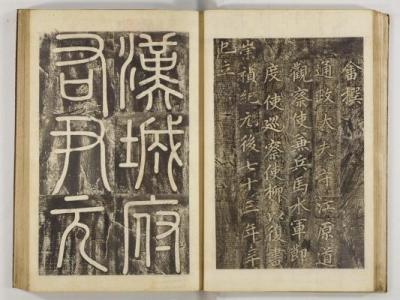 畬撰
通政大夫守江原道
觀察使兼兵馬水軍節
度使巡察使柳以復書
崇禎紀元後七十三年辛
巳立
漢城府
右尹元